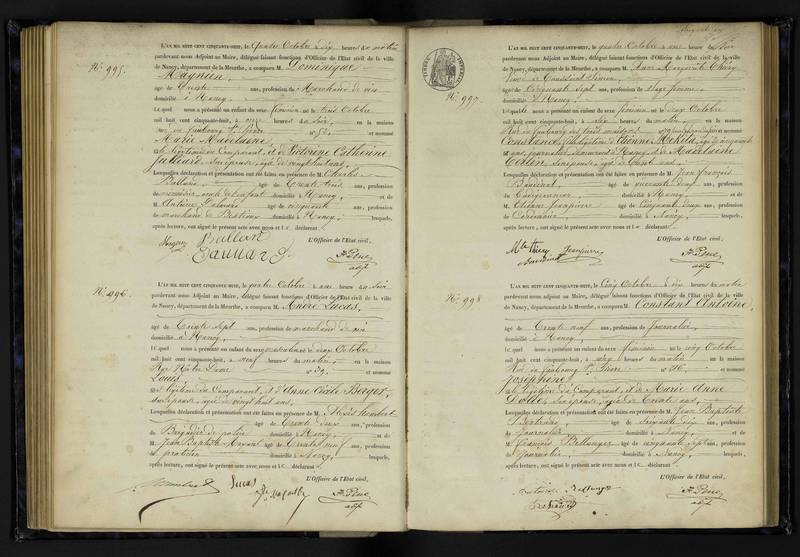 N.º 995.
L'AN MIL HUIT CENT CINQUANTE-HUIT, le quatre Octobre à dix heures du matin
pardevant nous Adjoint au Maire, délégué faisant fonctions d'Officier de l'Etat civil de la ville
de Nancy, département de la Meurthe, a comparu M. Dominique
Magnien,
âgé de trente ans, profession de Marchand de vin
domicilié à Nancy
lequel nous a présenté un enfant du sexe féminin né le trois Octobre
mil huit cent cinquante-huit, à onze heures du soir, en la maison
rue du faubourg St Pierre n.º 52, et nommé
Marie Madelaine
fille légitime du Comparant, et de Victorine Catherine
Julliard, son épouse, âgée de vingt huit ans.
Lesquelles déclaration et présentation ont été faites en présence de M. Charles
âgé de trente trois ans, profession
domicilié à Nancy et de
M. Antoine âgé de cinquante ans, profession
de marchand de domicilié à Nancy lesquels,
après lecture, ont signé le présent acte avec nous et le déclarant
L'Officier de l'Etat civil,
adjt
N.º 996.
L'AN MIL HUIT CENT CINQUANTE-HUIT, le quatre Octobre à une heure du soir
pardevant nous Adjoint au Maire, délégué faisant fonctions d'Officier de l'Etat civil de la ville
de Nancy, département de la Meurthe, a comparu M. André Lucas,
âgé de trente sept ans, profession de marchand de vin
domicilié à Nancy,
lequel nous a présenté un enfant du sexe masculin né le deux Octobre
mil huit cent cinquante-huit, à neuf heures du matin, en la maison
Rue Notre Dame n.º 39, et nommé
Louis,
fils légitime du Comparant, et d'Anne Cécile Berger,
son épouse, âgée de vingt huit ans.
Lesquelles déclaration et présentation ont été faites en présence de M. Alexis Humbert
âgé de trente deux ans, profession
de Brigadier de police domicilié à Nancy et de
M. Jean Baptiste âgé de trente neuf ans, profession
de praticien domicilié à Nancy, lesquels,
après lecture, ont signé le présent acte avec nous et le déclarant
L'Officier de l'Etat civil,
Humbert Lucas
adjt
TIMBRE IMPERIAL
N.º 997
L'AN MIL HUIT CENT CINQUANTE-HUIT, le quatre Octobre à une heure du soir
pardevant nous Adjoint au Maire, délégué faisant fonctions d'Officier de l'Etat civil de la ville
de Nancy, département de la Meurthe, a comparu M. Marie Marguerite Thiery
Veuve de Simon
âgée de cinquante sept ans, profession de Sage femme
domiciliée à Nancy,
laquelle nous a présenté un enfant du sexe féminin né le deux Octobre
mil huit cent cinquante-huit, à six heures du matin, en la maison
Rue du faubourg des trois maisons n.º et nommé
Constance, fille légitime d'Etienne
ans, domicilié à Nancy, et de Madelaine
Collin, son épouse, âgée de trente ans
Lesquelles déclaration et présentation ont été faites en présence de M. Jean François
âgé de quarante deux ans, profession
domicilié à Nancy et de
M. Etienne Jeanpierre âgé de cinquante deux ans, profession
de Cordonnier domicilié à Nancy, lesquels,
après lecture, ont signé le présent acte avec nous et le déclarant
L'Officier de l'Etat civil,
Thiery Jeanpierre
adjt
N.º 998
L'AN MIL HUIT CENT CINQUANTE-HUIT, le cinq Octobre à dix heures du matin
pardevant nous Adjoint au Maire, délégué faisant fonctions d'Officier de l'Etat civil de la ville
de Nancy, département de la Meurthe, a comparu M. Constant Antoine,
âgé de trente neuf ans, profession de journalier,
domicilié à Nancy,
lequel nous a présenté un enfant du sexe féminin né le cinq Octobre
mil huit cent cinquante-huit, à heures du matin en la maison
Rue du faubourg St Pierre n.º et nommé
Joséphine,
fille légitime du Comparant, et de Marie Anne
son épouse, âgée de trente ans,
Lesquelles déclaration et présentation ont été faites en présence de M. Jean Baptiste
âgé de soixante dix ans, profession
de Journalier domicilié à Nancy, et de
M. François Bellanger âgé de cinquante sept ans, profession
de Journalier, domicilié à Nancy, lesquels,
après lecture, ont signé le présent acte avec nous et le déclarant
L'Officier de l'Etat civil,
Antoine Bellanger
adjt